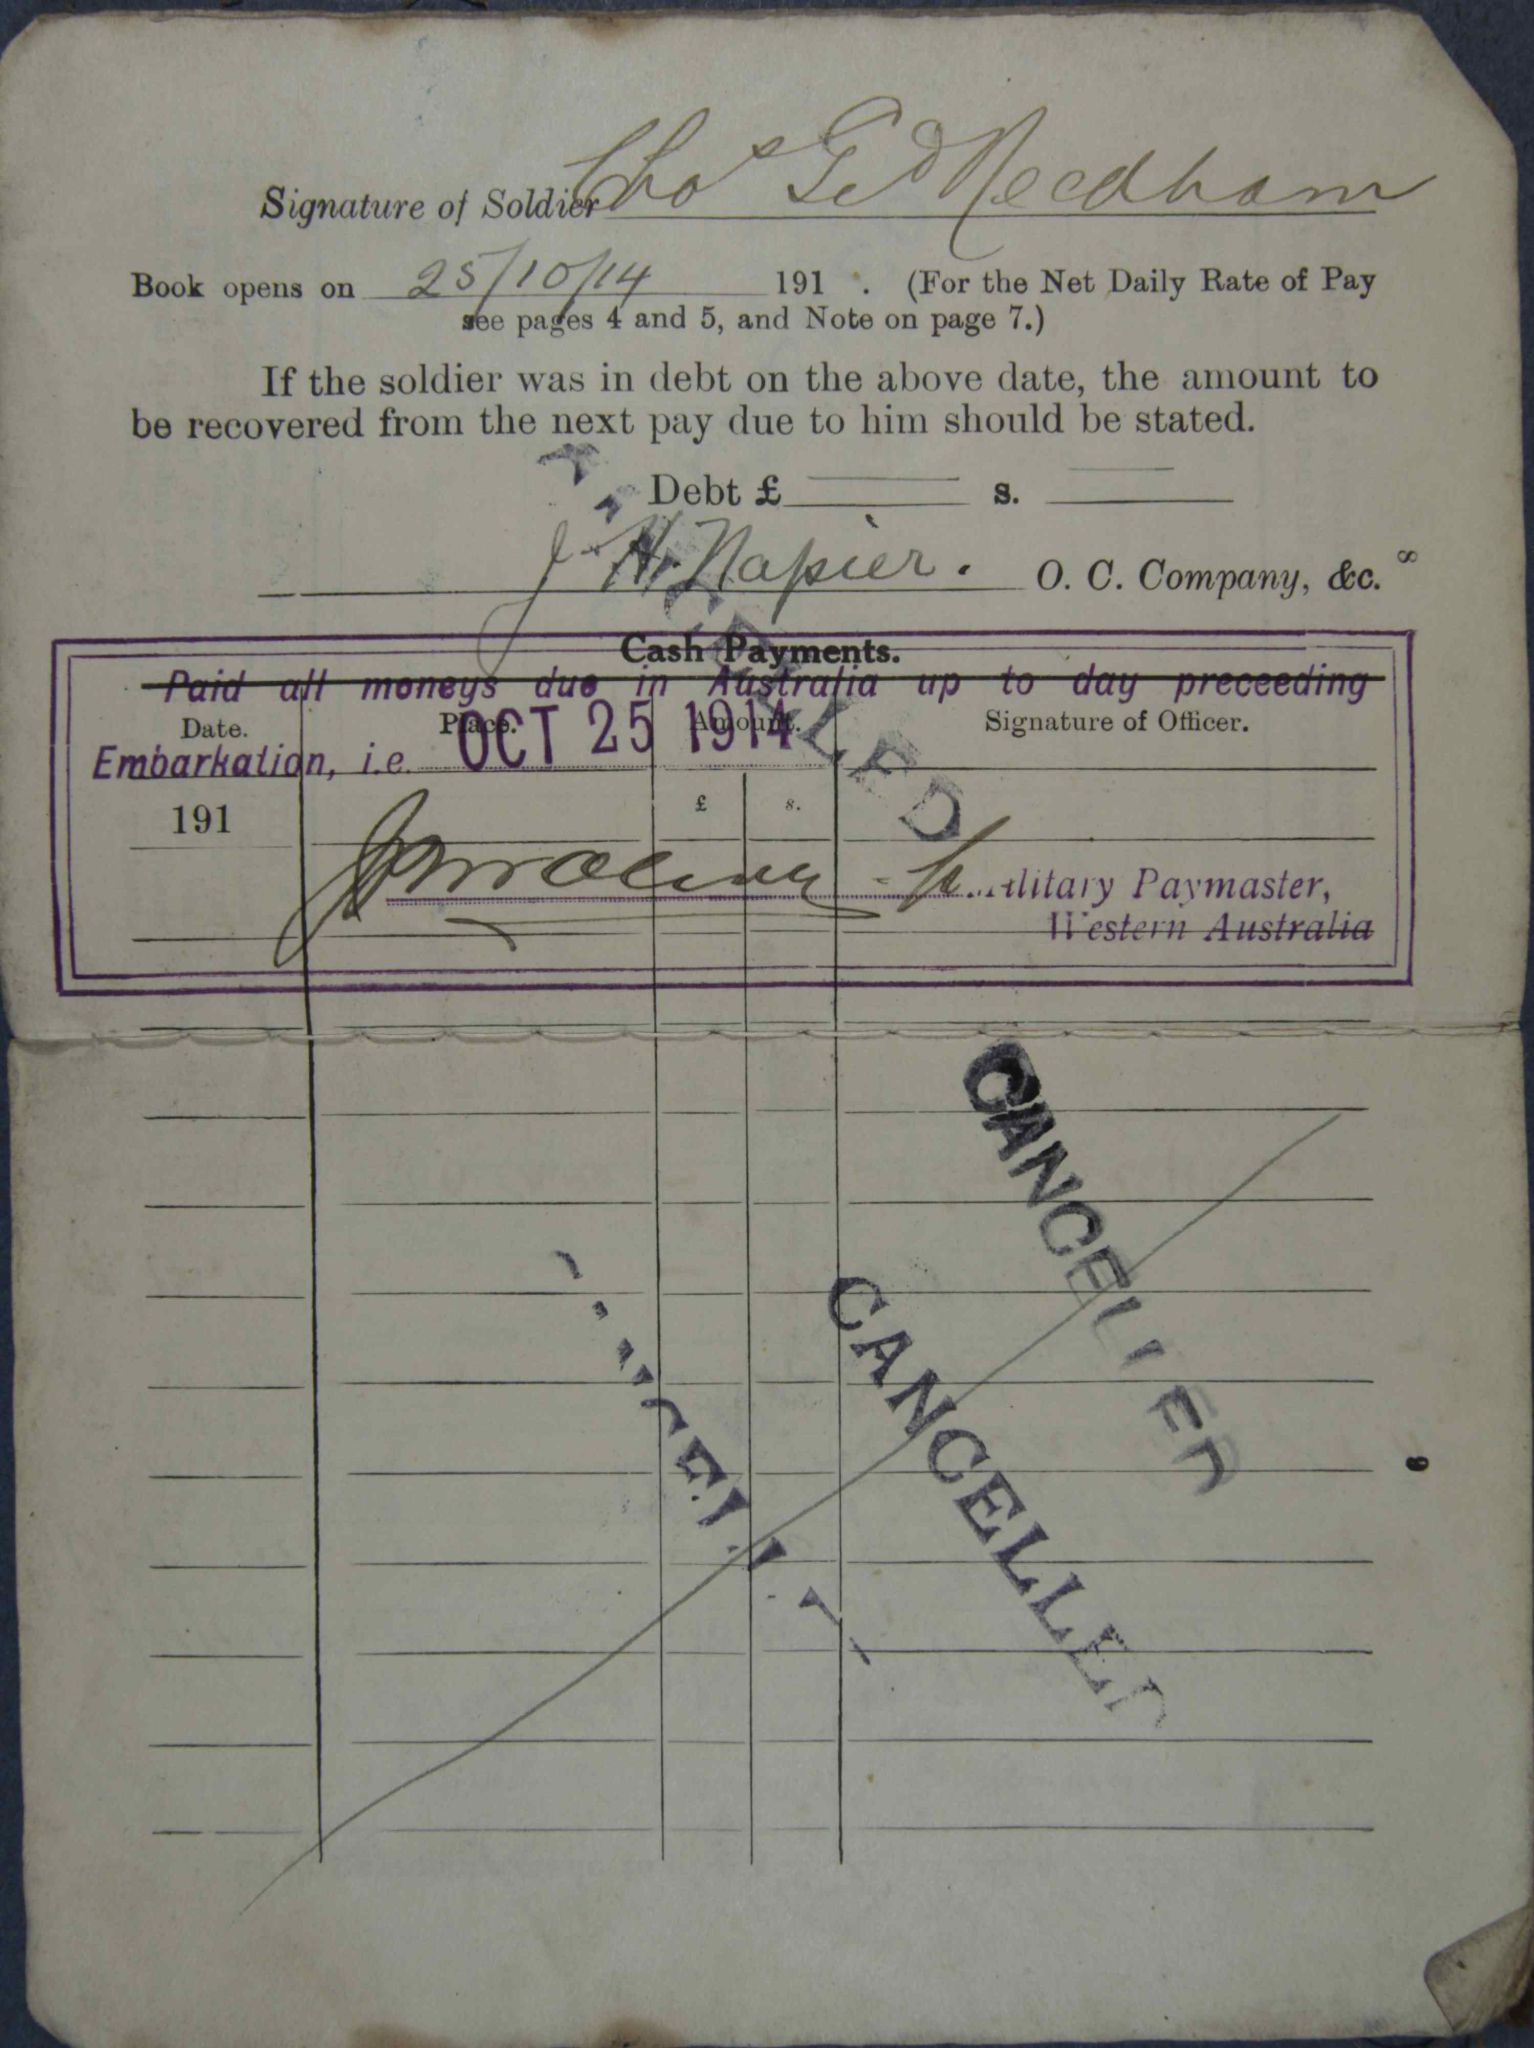 Signature of Soldier Thos Ged Needham
Book opens on 25/10/14 191 . (For the Net Daily Rate of Pay
see pages 4 and 5, and Note on page 7.)
If the soldier was in debt on the above date, the amount to
be recovered from the next pay due to him should be stated.
Debt £ s.
J. H. Napier. O. C. Company, &c.
8
Cash Payments.
Paid all moneys due in Australia up to day preceeding
Date. Place. Amount. Signature of Officer.
Embarkation, i.e. OCT 25 1914
191 £ s.
Military Paymaster,
Western Australia
CANCELLED
CANCELLED
CANCELLED
CANCELLED
9